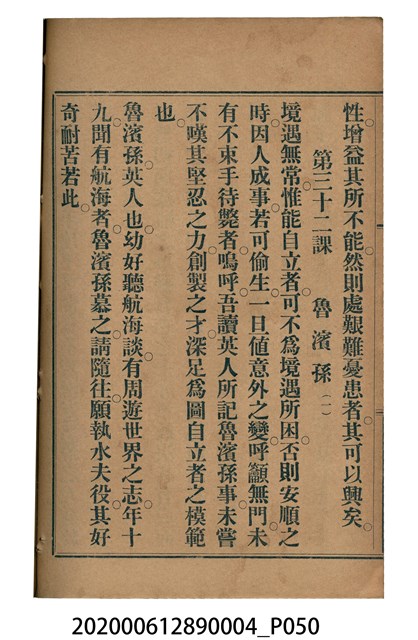 性增益其所不能然則處艱難憂患者其可以興矣。
第三十二課　魯濱孫（一）
境遇無常。惟能自立者。可不爲境遇所困。否則安順之
時。因人成事。若可偷生。一日値意外之變。呼籲無門。未
有不束手待斃者。嗚呼。吾讀英人所記魯濱孫事。未嘗
不嘆其堅忍之力。創製之才。深足爲圖自立者之模範
也。
魯濱孫。英人也。幼好聽航海談。有周遊世界之志。年十
九。聞有航海者。魯濱孫慕之。請隨往。願執水夫役。其好
奇耐苦若此。
202000612890004_P050